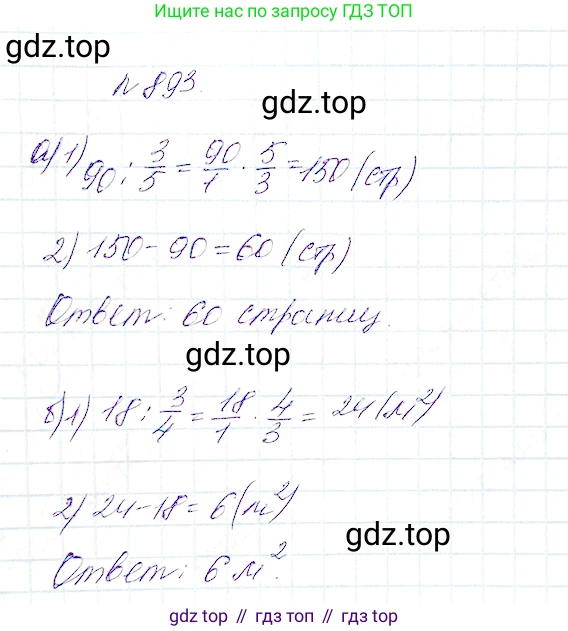 Ищите нас по запросу ГДЗ ТОП
gdz.top
№893.
gdz.top
а) 1) 90 : 3/5 = 90/1 · 5/3 = 150 (стр)
2) 150 - 90 = 60 (стр)
Ответ: 60 страниц.
gdz.top
б) 1) 18 : 3/4 = 18/1 · 4/3 = 24 (м²)
2) 24 - 18 = 6 (м²)
gdz.top
Ответ: 6 м².
gdz top // гдз топ // gdz top